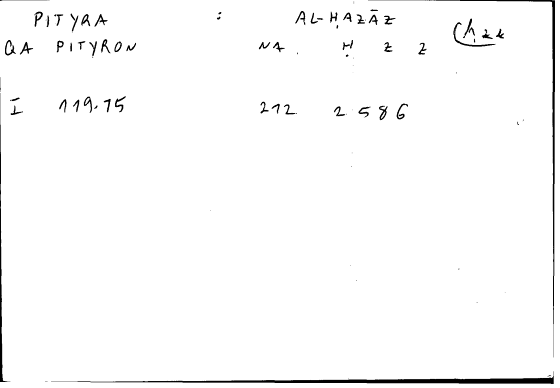 PITYRA : AL-ḤAZĀZ
QA PITYRON NA. Ḥ Z Z Ḥzz
I 119.15 212 2 586